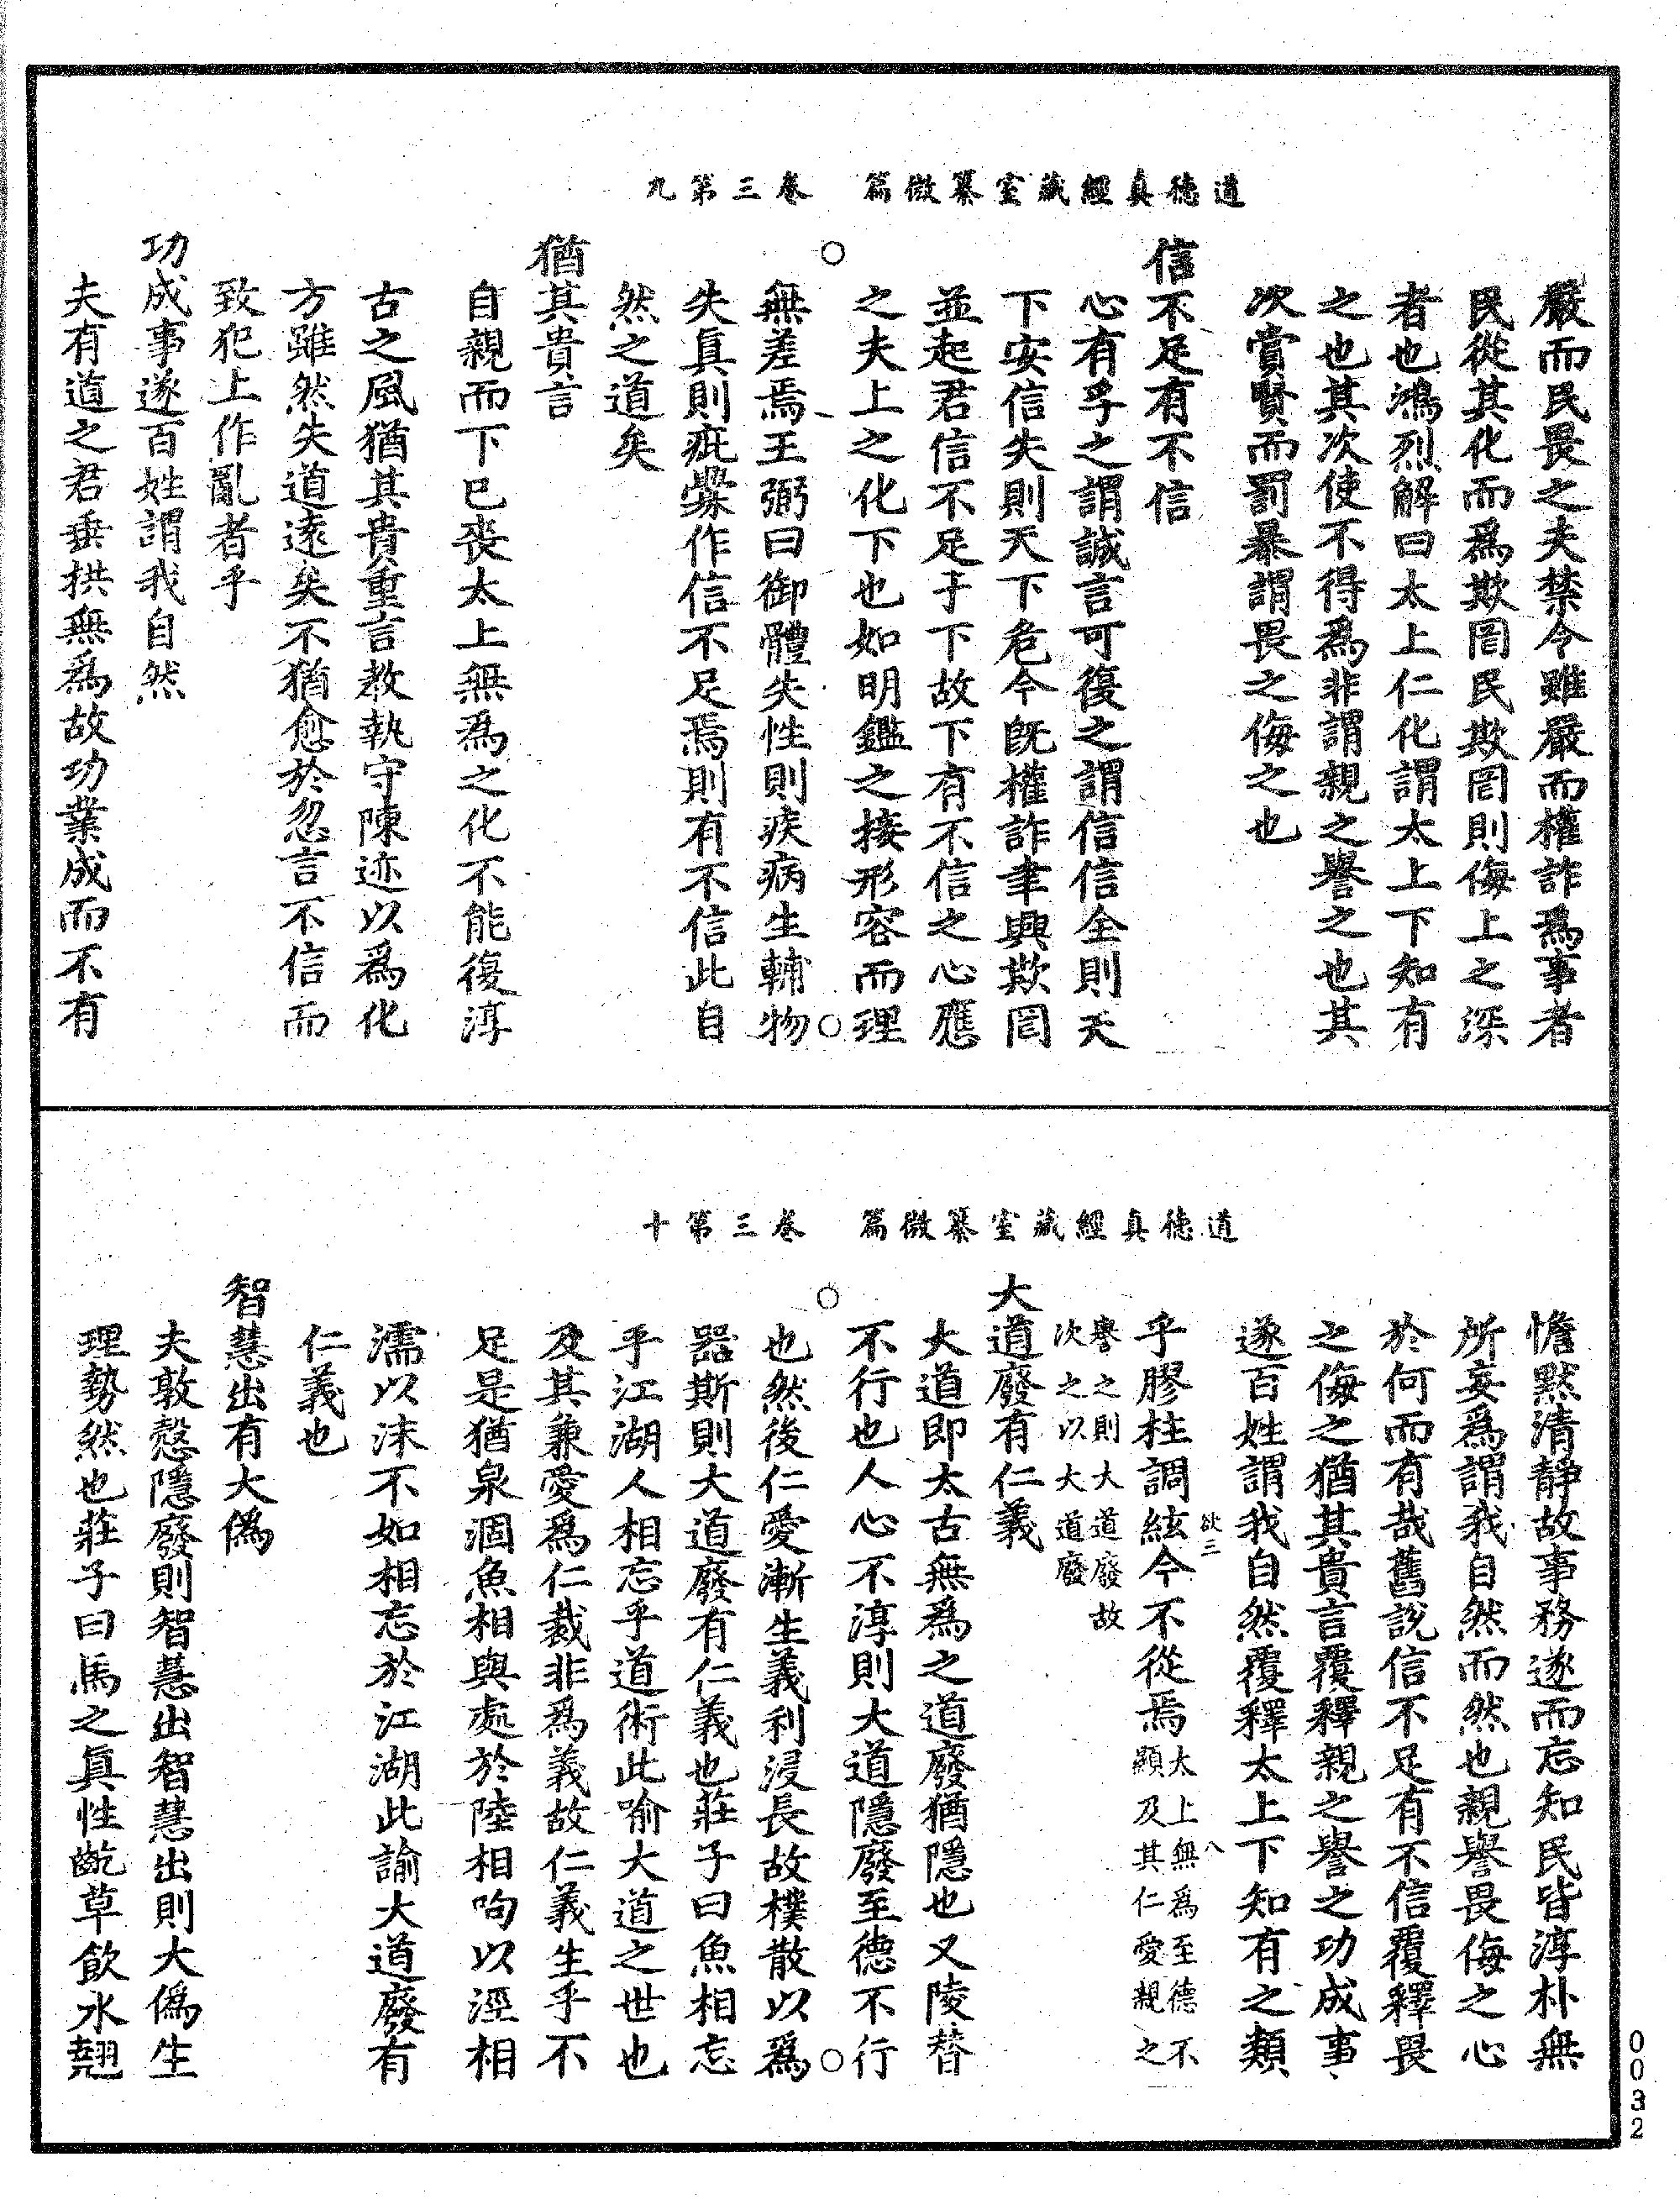 道德真經藏室纂微篇　卷三第九
嚴而民畏之夫禁令雖嚴而權詐爲事者
民從其化而爲欺罔民欺罔則侮上之深
者也鴻烈解曰太上仁化謂太上下知有
之也其次使不得爲非謂親之譽之也其
次賞賢而罰暴謂畏之侮之也
信不足有不信
心有孚之謂誠言可復之謂信信全則天
下安信失則天下危今旣權詐聿興欺罔
並起君信不足于下故下有不信之心應
之夫上之化下也如明鑑之接形容而理
無差焉王弼曰御體失性則疾病生輔物
失眞則疵釁作信不足焉則有不信此自
然之道矣
猶其貴言
自親而下巳喪太上無爲之化不能復淳
古之風猶其貴重言教執守陳迹以爲化
方雖然失道遠矣不猶愈於忽言不信而
致犯上作亂者乎
功成事遂百姓謂我自然
夫有道之君垂拱無爲故功業成而不有
道德真經藏室纂微篇　卷三第十
憺默清靜故事務遂而忘知民皆淳朴無
所妄爲謂我自然而然也親譽畏侮之心
於何而有哉舊說信不足有不信覆釋畏
之侮之猶其貴言覆釋親之譽之功成事
遂百姓謂我自然覆釋太上下知有之類
欲三　八
乎膠柱調絃今不從焉太上無爲至德不
顯及其仁愛親之
譽之則大道廢故
次之以大道廢
大道廢有仁義
大道即太古無爲之道廢猶隱也又陵替
不行也人心不淳則大道隱廢至德不行
也然後仁愛漸生義利浸長故樸散以爲
器斯則大道廢有仁義也莊子曰魚相忘
乎江湖人相忘乎道術此喻大道之世也
及其兼愛爲仁裁非爲義故仁義生乎不
足是猶泉涸魚相與處於陸相呴以溼相
濡以沫不如相忘於江湖此諭大道廢有
仁義也
智慧出有大僞
夫敦慤隱廢則智慧出智慧出則大僞生
理勢然也莊子曰馬之眞性齕草飲水翹
0032